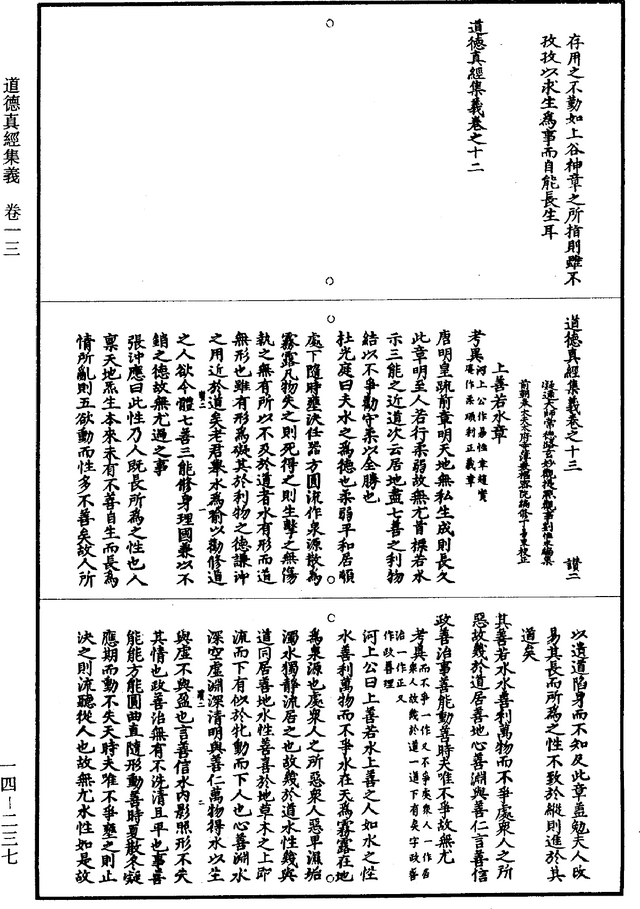 道德真經集義　卷一三
一四－二三七
存用之不勤如上谷神章之所指則雖不
孜孜以求生為事而自能長生耳
道德真經集義卷之十二
道德真經集義卷之十三　讃二
凝遠大師常德路玄妙觀提點觀事劉惟永編集
前朝奉大夫太府寺簿兼樞密院編修丁易東校正
上善若水章
考異河上公作易性章趙實
庵作柔順利正義章
唐明皇疏前章明天地無私生成則長久
此章明至人若行柔弱故無尤首標若水
示三能之近道次云居地盡七善之利物
結以不爭勸守柔以全勝也
杜光庭曰夫水之為德也柔弱平和居順
處下隨時壅決任器方圓流作泉源散為
霧露凡物失之則死得之則生擊之無傷
執之無有所以不及於道者水有形而道
無形也雖有形為礙其於利物之德謙沖
之用近於道矣老君舉水為喻以勸修道
之人欲令體七善三能修身理國兼以不
爭之德故無尤過之事
張沖應曰此性乃人既長所為之性也人
稟天地炁生本來未有不善自生而長為
情所亂則五欲動而性多不善矣故人所
以遺道陷身而不知反此章蓋勉夫人改
易其長而所為之性不致於縱則進於其
道矣
其善若水水善利萬物而不爭處衆人之所
惡故幾於道居善地心善淵與善仁言善信
政善治事善能動善時夫唯不爭故無尤
考異而不爭一作又不爭矣衆人一作居
衆人故幾於道一道下有矣字政善
治一作正又
作政善理
河上公曰上善若水上善之人如水之性
水善利萬物而不爭水在天為霧露在地
為泉源也處衆人之所惡衆人惡卑濕垢
濁水獨靜流居之也故幾於道水性幾與
道同居善地水性善喜於地草木之上即
流而下有似於牝動而下人也心善淵水
深空虛淵深清明與善仁萬物得水以生
與虛不與盈也言善信水內影照形不失
其情也政善治無有不洗清且平也事善
能能方能圓曲直隨形動善時夏散冬凝
應期而動不失天時夫唯不爭壅之則止
決之則流聽從人也故無尤水性如是故